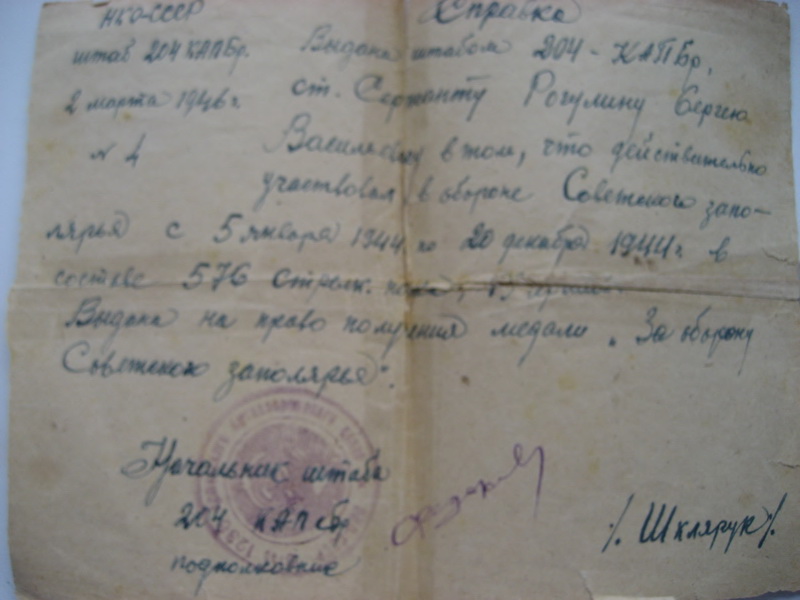 НКО-СССР Справка
штаб 204 КАПбр. Выдана штабом 204-КАПбр,
2 марта 1946 г. ст. Сержанту Рогулину Сергею
N 4 Васильевичу в том, что действительно
участвовал в обороне Советского запо-
лярья с 5 января 1944 по 20 декабря 1944 г. в
составе 576 Стрелк. полка,
Выдана на право получения медали „За оборону
Советского заполярья".
Начальник штаба
204 КАПбр
подполковник
/. Шклярук/.